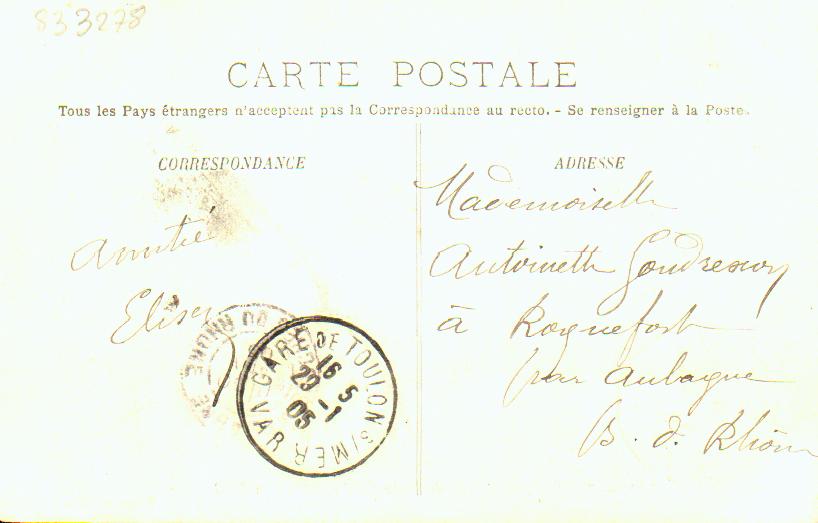 833278
CARTE POSTALE
Tous les Pays étrangers n'acceptent pas la Correspondance au recto. - Se renseigner à la Poste.
CORRESPONDANCE
Amitié
ADRESSE
Mademoiselle
Antoinette
à Roquefort
par Aubagne
B. d. Rhône
GARE DE TOULON S/MER
VAR
16 5
29 -1
05